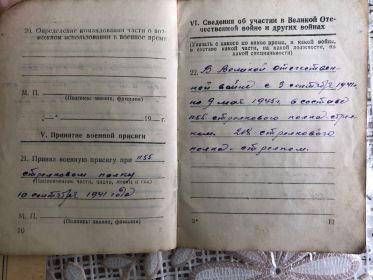 20. Определение командования части о воз-
можном использовании в военное время
М. П.
(Подпись: звание, фамилия)
„ “ 19 — г.
V. Принятие военной присяги
21. Принял военную присягу при 1155
стрелковом полку
(Наименование части, число, месяц и год)
10 сентября 1941 года
М. П.
(Подпись: звание, фамилия)
10
VI. Сведения об участии в Великой Оте-
чественной войне и других войнах
(Указать с какого до какое время, в какой войне,
в составе какой части, на какой должности, по
какой специальности)
22. В Великой отечествен-
ной войне с 3 сентября 1941г.
по 9 мая 1945г. в составе
1155 стрелкового полка стрел-
ком. стрелкового
полка - стрелком.
2*
11